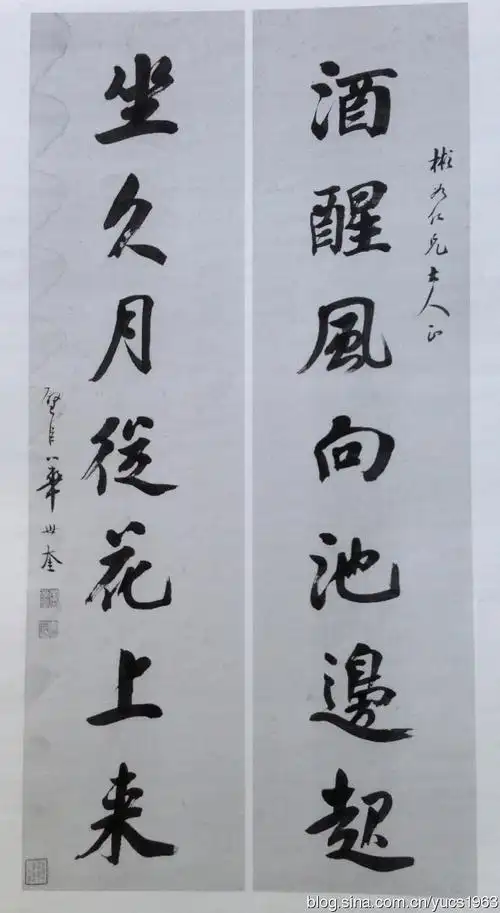 仁兄大人正
酒醒風向池邊起
坐久月從花上来
璧臣華世奎
blog.sina.com.cn/yucs1963